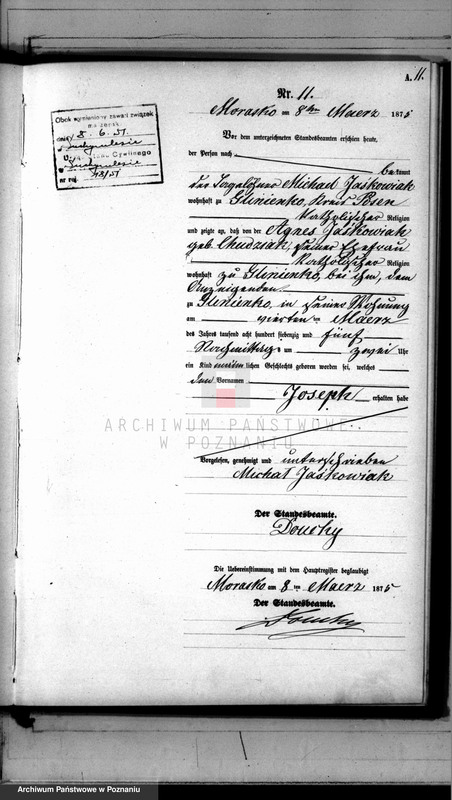 A. 11.
Nr. 11.
Morasko am 8ten Maerz 1875
Obok wymieniony zawarł związek
małżeński
dnia 8. 6. 51.
Urząd Stanu Cywilnego
nr rej. 48/51
Vor dem unterzeichneten Standesbeamten erschien heute,
der Person nach
bekannt
der Tagelöhner Michael Jaskowiak
wohnhaft zu Glinienko, Kreis Posen
katholischer Religion
und zeigte an, daß von der Agnes Jaskowiak
geb. Chudziak, seiner Ehefrau
katholischer Religion
wohnhaft zu Glinienko, bei ihm, dem
Anzeigenden
zu Glinienko, in seiner Wohnung
am vierten ten Maerz
des Jahres tausend acht hundert siebenzig und fünf
Nachmittags um zwei Uhr
ein Kind männlichen Geschlechts geboren worden sei, welches
den Vornamen
Joseph erhalten habe
ARCHIWUM PAŃSTWOWE
W POZNANIU
Vorgelesen, genehmigt und unterschrieben
Michał Jaskowiak
Der Standesbeamte.
Die Uebereinstimmung mit dem Hauptregister beglaubigt
Morasko am 8 ten Maerz 1875
Der Standesbeamte.
Archiwum Państwowe w Poznaniu